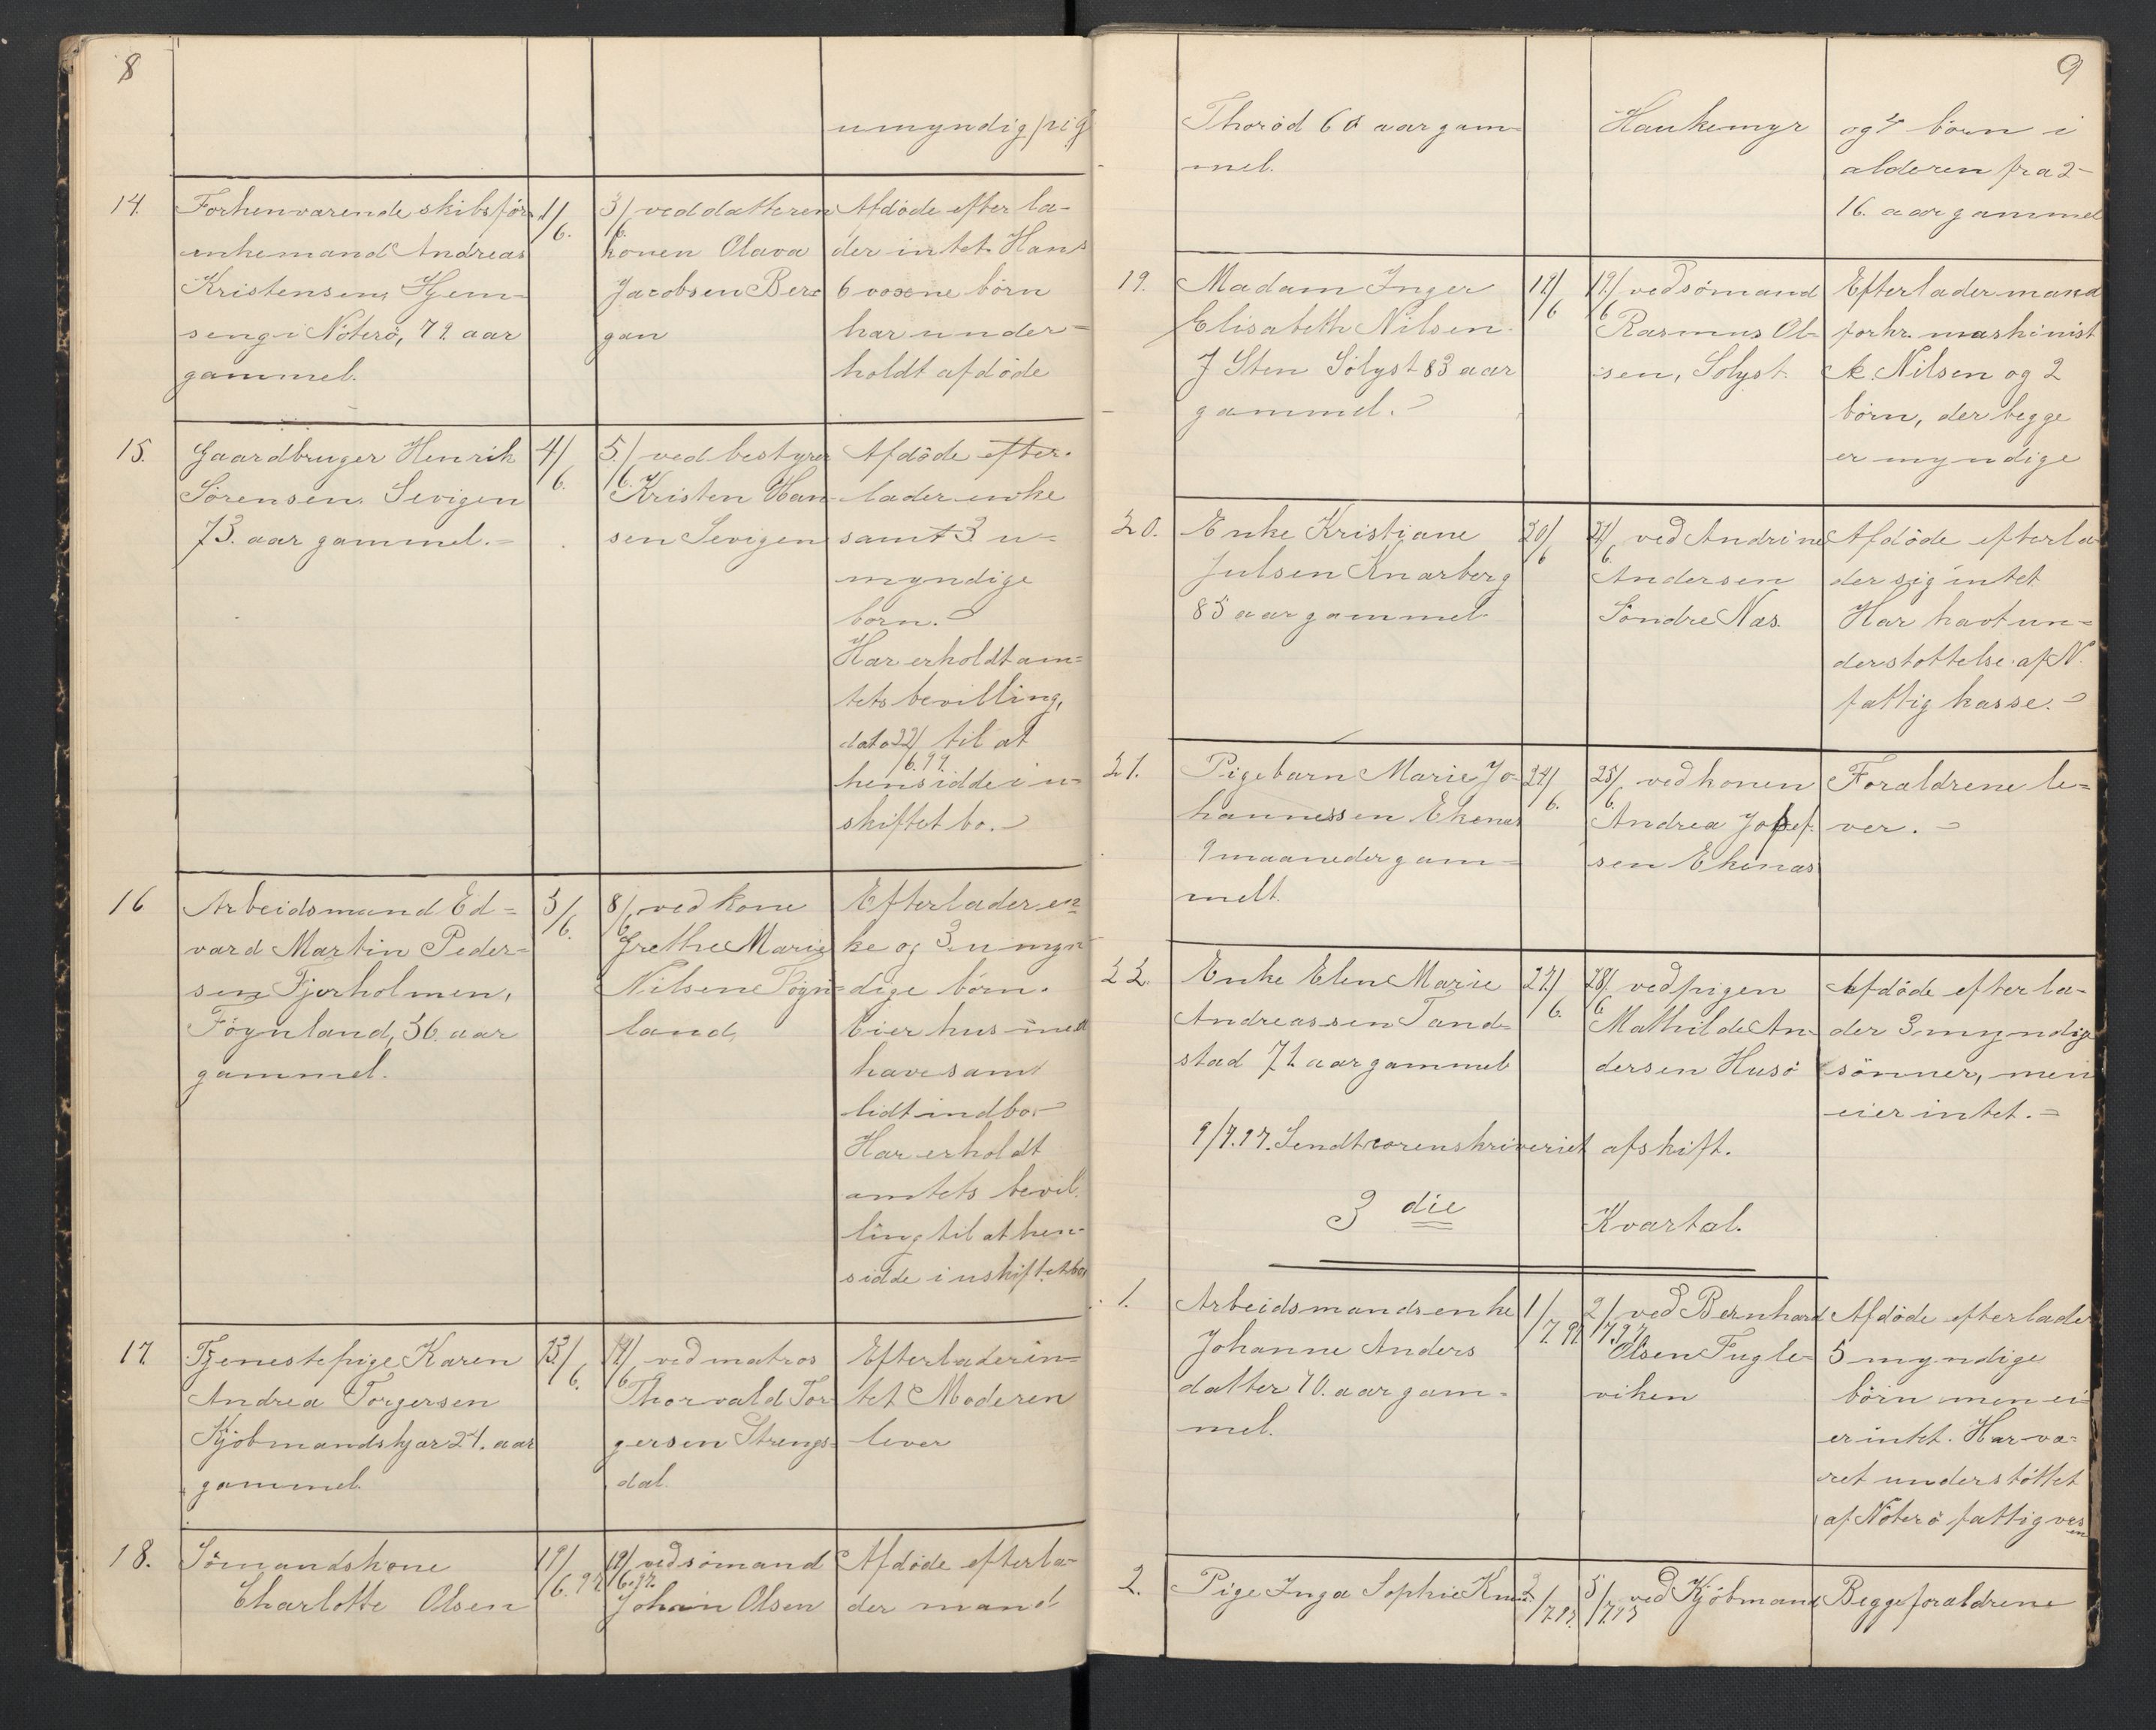 8
umyndig pig
14.
Forhenværende skibsför.
enkemand Andreas
Kristensen, Hjem-
seng i Nöterö, 79. aar
gammel.
1/6.
3/6. ved datteren
konen Olava
Jacobsen Ber-
gan
Afdöde efterla-
der intet. Hans
6 voxne börn
har under-
holdt afdöde
15.
Gaardbruger Henrik
Sörensen, Sevigen
73. aar gammel.-
4/6.
5/6. ved bestyrer
Kristen Han-
sen Sevigen
Afdöde efter-
lader enke
samt 3 u-
myndige
börn.-
Har erholdt am-
tets bevilling,
dato 22/6.97. til at
hensidde i u-
skiftet bo.-
16
Arbeidsmand Ed-
vard Martin Peder-
sen Fjærholmen,
Föynland, 36. aar
gammel.
5/6.
8/6. ved kone
Grethe Marie
Nilsen Föyn-
land,
Efterlader en-
ke og 3 umyn-
dige börn.
Eier hus med
have samt
lidt indbo.-
Har erholdt
amtets bevil-
ling til at hen-
sidde i uskiftet bo
17.
Tjenestepige Karen
Andrea Torgersen
Kjöbmandskjær 24. aar
gammel.
13/6.
14/6. ved matros
Thorvald Tor-
gersen Strengs-
dal.
Efterlader in-
tet. Moderen
lever
18.
Sömandskone
Charlotte Olsen
19/6.97.
19/6.97. ved sömand
Johan Olsen
Afdöde efterla-
der mand
9
Thoröd 60 aar gam-
mel.
Haukemyr
og 4 börn i
alderen fra 2-
16. aar gammel
19.
Madam Inger
Elisabeth Nilsen
f Sten Sölyst 83 aar
gammel.-
19/6
19/6 ved sömand
Rasmus Ol-
sen, Solyst.
Efterlader mand
forhr. maskinist
K. Nilsen og 2
börn, der begge
er myndige
20.
Enke Kristiane
Julsen Knarberg
85 aar gammel
20/6
21/6. ved Andrine
Andersen
Söndre Næs.
Afdöde efterla-
der sig intet
Har havt un-
derstöttelse af N.
fattigkasse.-
21.
Pigebarn Marie Jo-
hannessen Ekenæs
9 maaneder gam-
melt.
24/6.
25/6. ved konen
Andrea Josef-
sen Ekenæs
Forældrene le-
ver.-
22.
Enke Elen Marie
Andreassen Tand-
stad 71 aar gammel
27/6.
28/6. ved pigen
Mathilde An-
dersen Husö
Afdöde efterla-
der 3 myndige
sönner, men
eier intet.-
9/7.97. Sendt sorenskriveriet afskift.
3 die Kvartal.
1.
Arbeidsmandsenke
Johanne Anders
datter 70. aar gam-
mel.
1/7.97.
2/7.97 ved Bernhard
Olsen Fugle-
viken
Afdöde efterlader
5 myndige
börn men ei-
er intet. Har væ-
ret understöttet
af Nöterö fattigves
en
2.
Pige Inga Sophie
2/7.97.
5/7.97 ved Kjöbmand
Begge forældrene